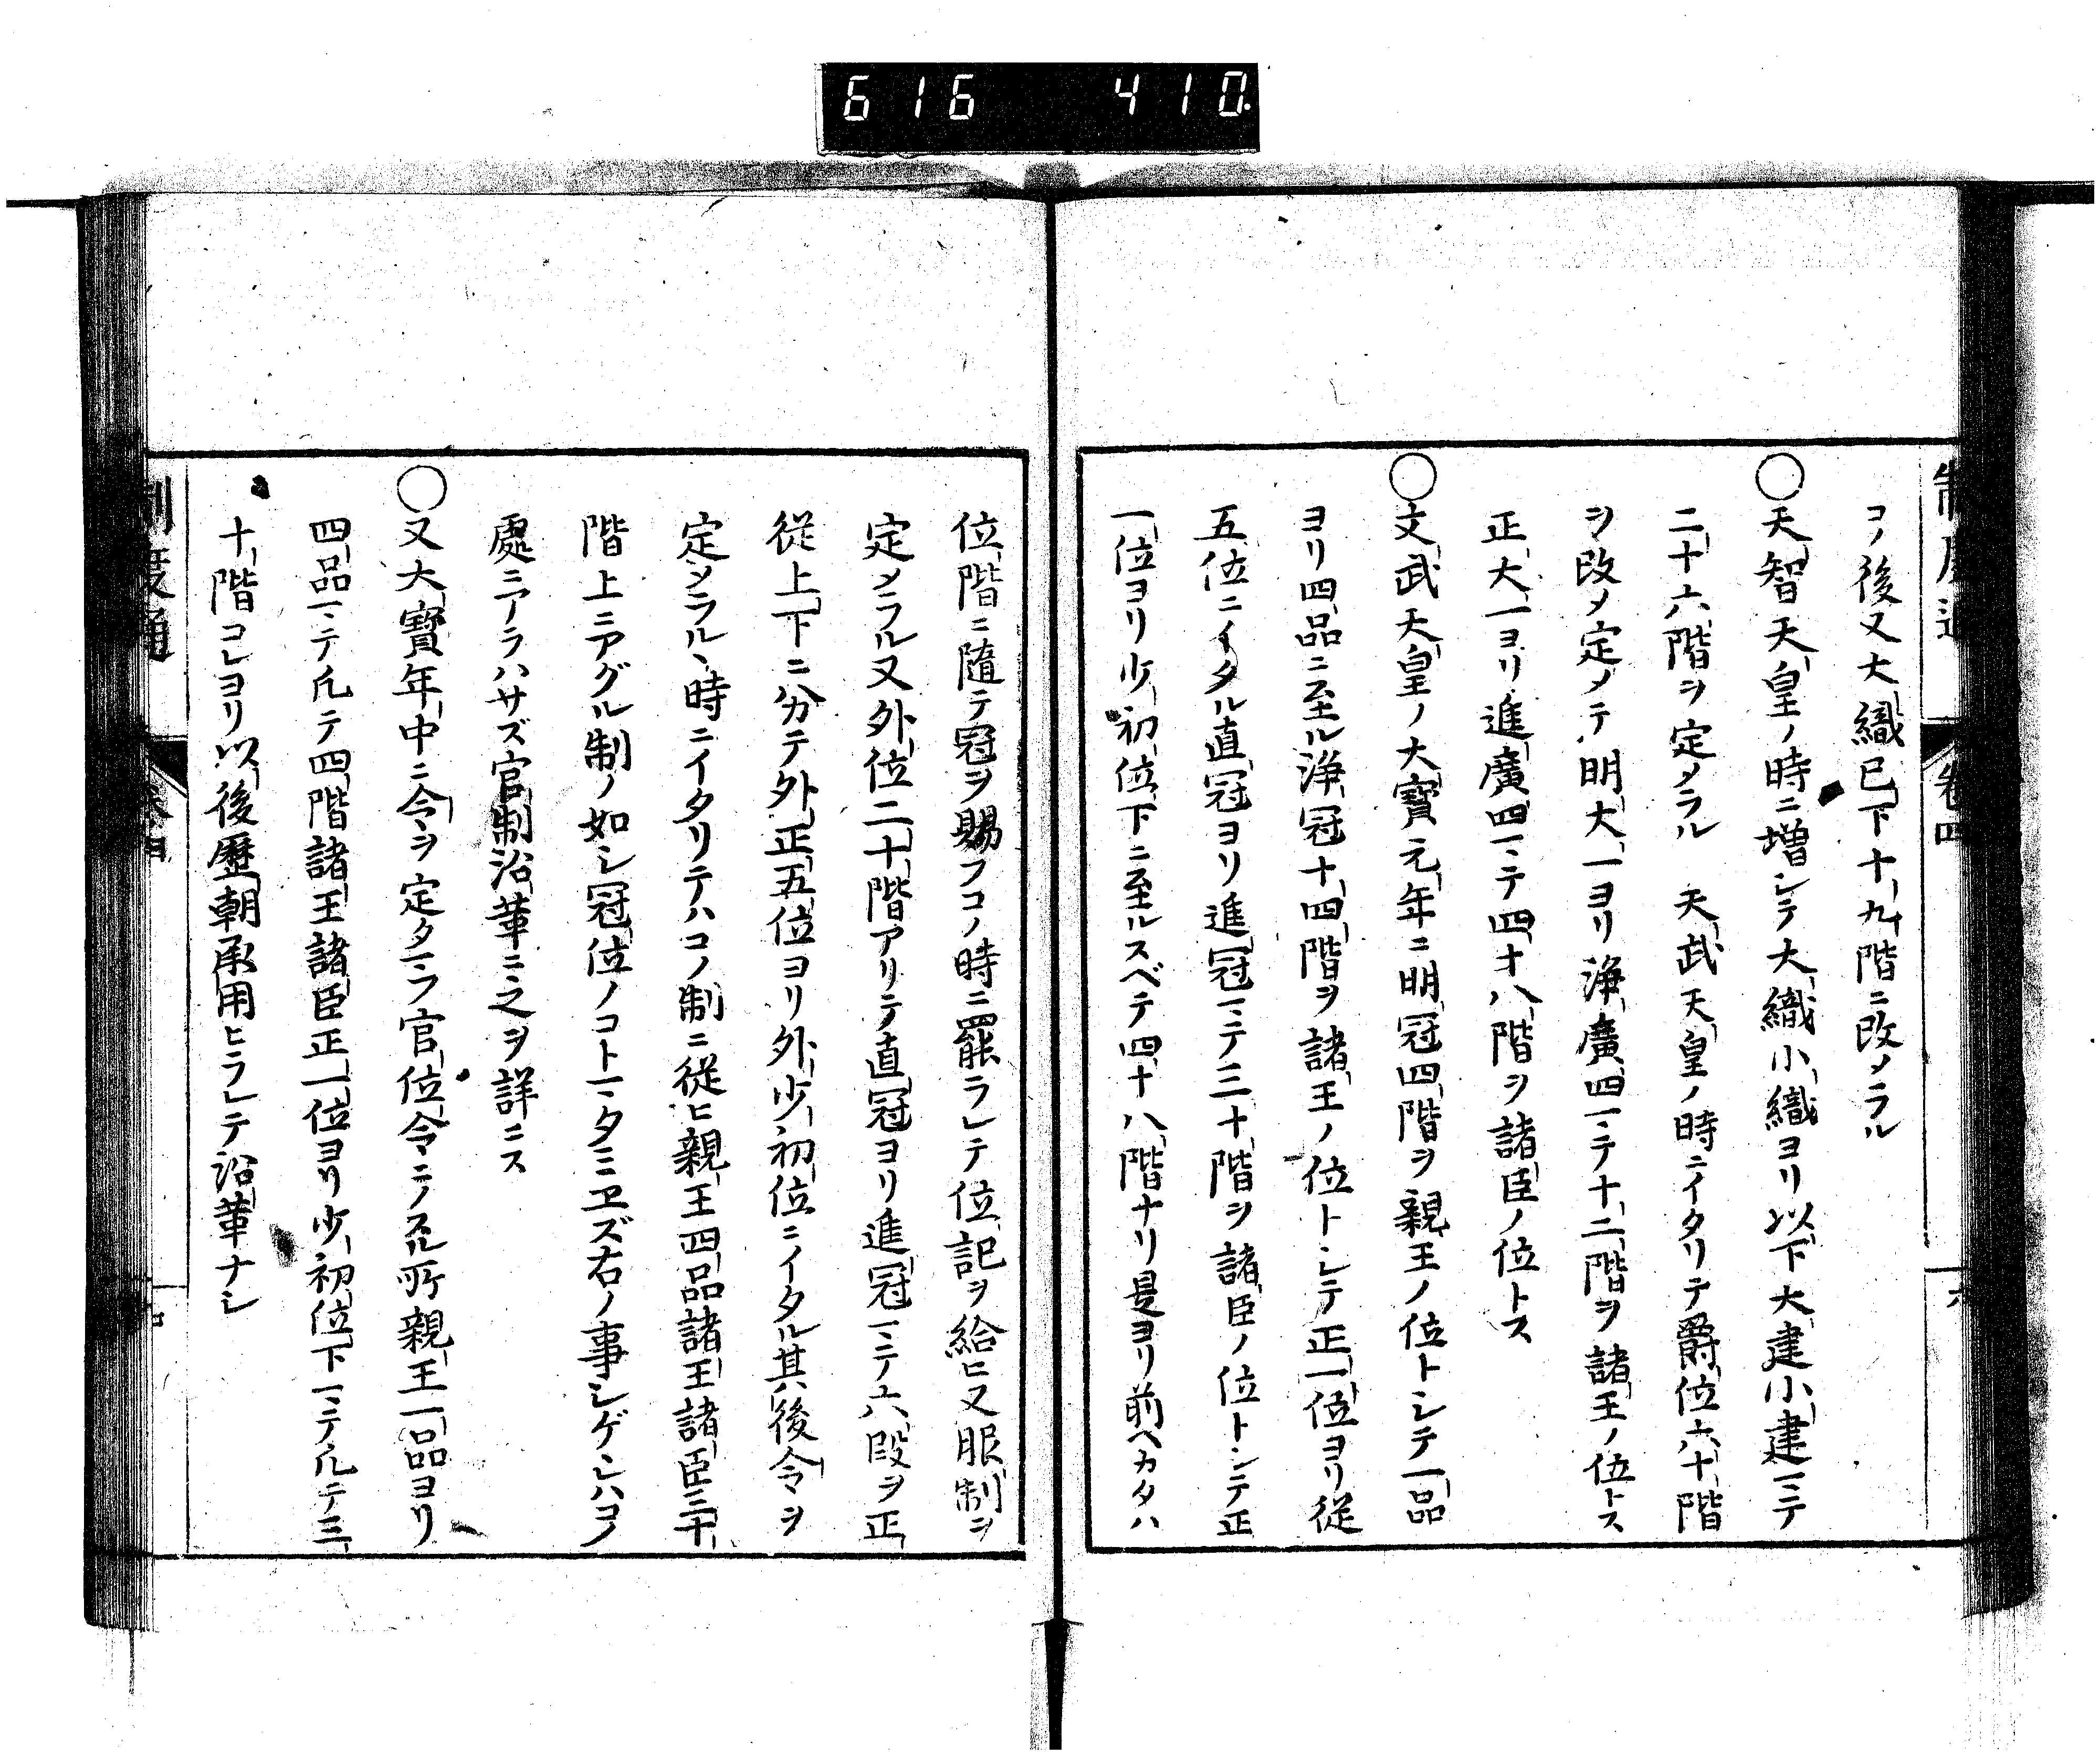 616 410.
制度通 卷四 六
コノ後又大織已下十九階ニ改メラル
〇天智天皇ノ時ニ増シテ大織小織ヨリ以下大建小建ニテ
二十六階ヲ定メラル 天武天皇ノ時ニイタリテ爵位六十階
ヲ改メ定メテ明大一ヨリ淨廣四ニテ十二階ヲ諸王ノ位トス
正大一ヨリ進廣四ニテ四十八階ヲ諸臣ノ位トス
〇文武天皇ノ大寳元年ニ明冠四階ヲ親王ノ位トシテ一品
ヨリ四品ニ至ル淨冠十四階ヲ諸王ノ位トシテ正一位ヨリ従
五位ニイタル直冠ヨリ進冠ニテ三十階ヲ諸臣ノ位トシテ正
一位ヨリ少初位下ニ至ルスベテ四十八階ナリ是ヨリ前ヘカタハ
位階ニ隨テ冠ヲ賜フコノ時ニ罷ラレテ位記ヲ給ヒ又服制ヲ
定メラル又外位二十階アリテ直冠ヨリ進冠ニテ六段ヲ正
従上下ニ分テ外正五位ヨリ外少初位ニイタル其後令ヲ
定メラルヽ時ニイタリテハコノ制ニ従ヒ親王四品諸王諸臣三十
階上ニアグル制ノ如シ冠位ノコト一タミヱズ右ノ事シゲシハコノ
處ニアラハサズ官制沿革ニ之ヲ詳ニス
〇又大寳年中ニ令ヲ定タマフ官位令ニノスル所親王一品ヨリ
四品ニテ凡テ四階諸王諸臣正一位ヨリ少初位下ニテ凡テ三
十階コレヨリ以後歷朝承用ヒラレテ沿革ナシ
制度通 卷四